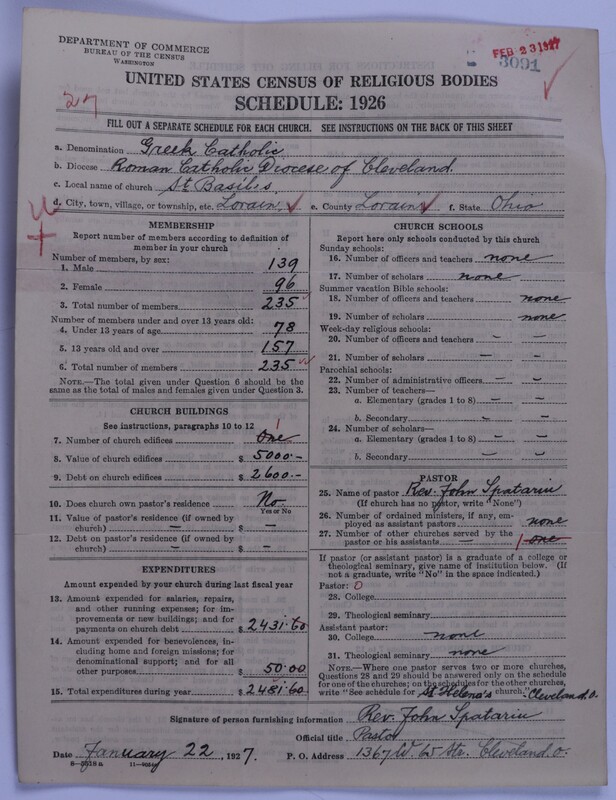 DEPARTMENT OF COMMERCE
BUREAU OF THE CENSUS
WASHINGTON
FEB 23 1927
3091
27
UNITED STATES CENSUS OF RELIGIOUS BODIES
SCHEDULE: 1926
FILL OUT A SEPARATE SCHEDULE FOR EACH CHURCH. SEE INSTRUCTIONS ON THE BACK OF THIS SHEET
a. Denomination Greek Catholic
b. Diocese Roman Catholic Diocese of Cleveland.
c. Local name of church St Basilis
d. City, town, village, or township, etc. Lorain e. County Lorain f. State Ohio
MEMBERSHIP
Report number of members according to definition of
member in your church
Number of members, by sex:
1. Male 139
2. Female 96
3. Total number of members 235
Number of members under and over 13 years old:
4. Under 13 years of age 78
5. 13 years old and over 157
6. Total number of members 235
NOTE.—The total given under Question 6 should be
the same as the total of males and females given under Question 3.
CHURCH BUILDINGS
See instructions, paragraphs 10 to 12
7. Number of church edifices One 1
8. Value of church edifices $ 5000.-
9. Debt on church edifices $ 2600.-
10. Does church own pastor's residence No
Yes or No
11. Value of pastor's residence (if owned by
church) — $ —
12. Debt on pastor's residence (if owned by
church) — $ —
EXPENDITURES
Amount expended by your church during last fiscal year
13. Amount expended for salaries, repairs,
and other running expenses; for im-
provements or new buildings; and for
payments on church debt $ 2431.60
14. Amount expended for benevolences, in-
cluding home and foreign missions; for
denominational support; and for all
other purposes $ 50.00
15. Total expenditures during year $ 2481.60
CHURCH SCHOOLS
Report here only schools conducted by this church
Sunday schools:
16. Number of officers and teachers none
17. Number of scholars none
Summer vacation Bible schools:
18. Number of officers and teachers none
19. Number of scholars none
Week-day religious schools:
20. Number of officers and teachers — —
21. Number of scholars — —
Parochial schools:
22. Number of administrative officers — —
23. Number of teachers—
a. Elementary (grades 1 to 8) — —
b. Secondary — —
24. Number of scholars—
a. Elementary (grades 1 to 8) — —
b. Secondary — —
PASTOR
25. Name of pastor Rev. John Spatariu
(If church has no pastor, write "None")
26. Number of ordained ministers, if any, em-
ployed as assistant pastors none
27. Number of other churches served by the
pastor or his assistants — 1 one
If pastor (or assistant pastor) is a graduate of a college or
theological seminary, give name of institution below. (If
not a graduate, write "No" in the space indicated.)
Pastor: 0
28. College
29. Theological seminary
Assistant pastor:
30. College none
31. Theological seminary none
NOTE.—Where one pastor serves two or more churches,
Questions 28 and 29 should be answered only on the schedule
for one of the churches; on the schedules for the other churches,
write "See schedule for St Helena's church." Cleveland, O.
Signature of person furnishing information Rev. John Spatariu
Official title Pastor
Date January 22, 1927. P. O. Address 1367 W. 65 Str. Cleveland, O.
8-5518a